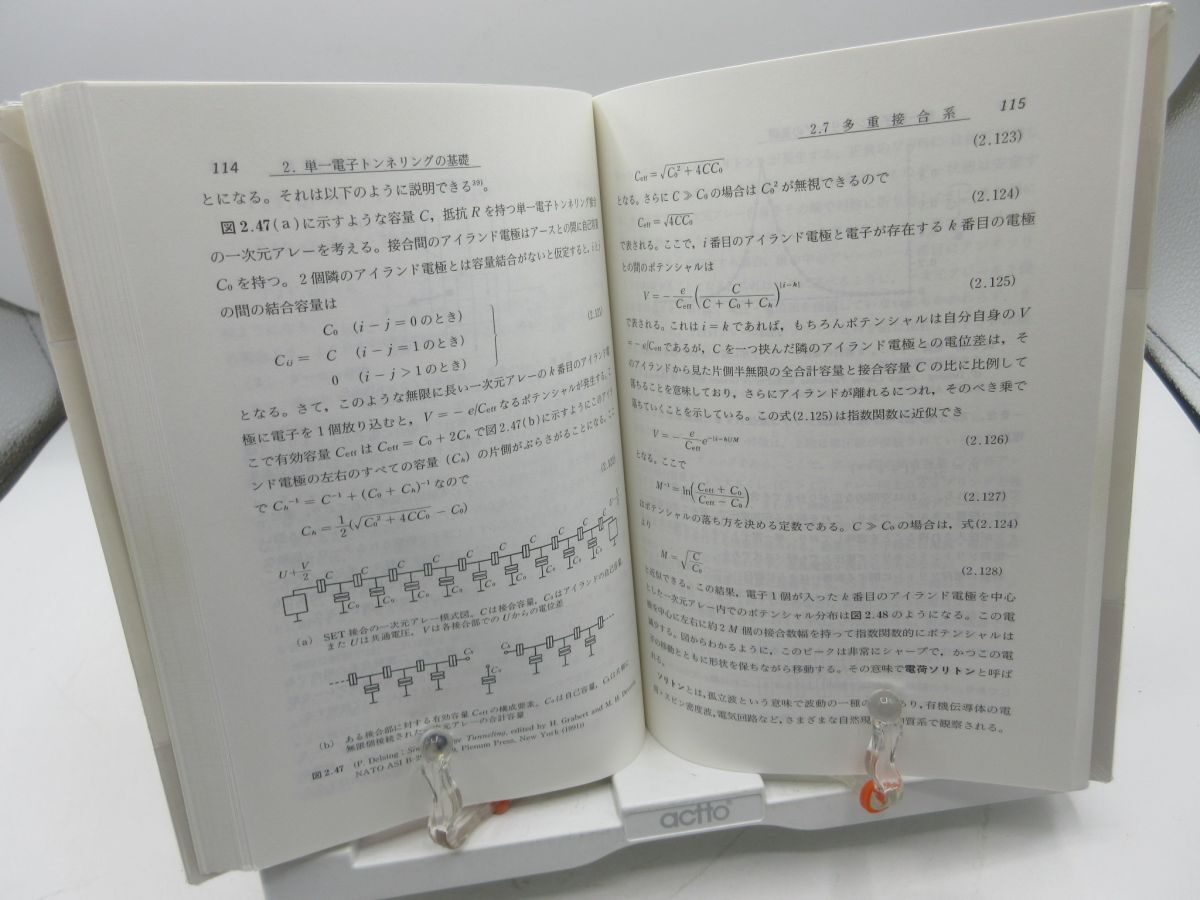 114 2. 単一電子トンネリングの基礎
とになる。それは以下のように説明できる³⁹⁾。
図2.47(a)に示すような容量 C,抵抗 R を持つ単一電子トンネリング接合
の一次元アレーを考える。接合間のアイランド電極はアースとの間に自己容量
C₀ を持つ。2個隣のアイランド電極とは容量結合がないと仮定すると,i と j
の間の結合容量は
C₀ (i − j = 0 のとき)
Cᵢⱼ = C (i − j = 1 のとき)
0 (i − j > 1 のとき)
となる。さて,このような無限に長い一次元アレーの k 番目のアイランド電
極に電子を1個放り込むと,V = − e/Ceff なるポテンシャルが発生する。こ
こで有効容量 Ceff は Ceff = C₀ + 2Cₕ で図2.47(b)に示すようにこのアイラ
ンド電極の左右のすべての容量(Cₕ)の片側がぶらさがることになる。ここ
で Cₕ⁻¹ = C⁻¹ + (C₀ + Cₕ)⁻¹ なので
Cₕ = 1/2(√(C₀² + 4CC₀) − C₀)
U + V/2 C C C C C C C C C
C₀ C₀ C₀ C₀ C₀ C₀ C₀ C₀
(a) SET 接合の一次元アレー模式図。C は接合容量,C₀ はアイランドの自己容量,
また U は共通電圧,V は各接合部での U からの電位差
C₀
(b) ある接合部に対する有効容量 Ceff の構成要素。C₀ は自己容量,
無限個接続された アレーの合計容量
図2.47 (P. Delsing : Tunneling, edited by H. Grabert and M. H.
NATO ASI Plenum Press, New York (1991))
2.7 多重接合系 115
Ceff = √(C₀² + 4CC₀) (2.123)
となる。さらに C ≫ C₀ の場合は C₀² が無視できるので
Ceff = √(4CC₀) (2.124)
で表される。ここで,i 番目のアイランド電極と電子が存在する k 番目の電極
との間のポテンシャルは
V = − e/Ceff (C/(C + C₀ + Cₕ))^|i−k| (2.125)
で表される。これは i = k であれば,もちろんポテンシャルは自分自身の V
= − e/Ceff であるが,C を一つ挟んだ隣のアイランド電極との電位差は,そ
のアイランドから見た片側半無限の全合計容量と接合容量 C の比に比例して
落ちることを意味しており,さらにアイランドが離れるにつれ,そのべき乗で
落ちていくことを示している。この式(2.125)は指数関数に近似でき
V = − e/Ceff e^−(i−k)/M (2.126)
となる。ここで
M⁻¹ = ln((Ceff + C₀)/(Ceff − C₀)) (2.127)
はポテンシャルの落ち方を決める定数である。C ≫ C₀ の場合は,式(2.124)
より
M = √(C/C₀) (2.128)
と近似できる。この結果,電子1個が入った k 番目のアイランド電極を中心
とした一次元アレー内でのポテンシャル分布は図2.48のようになる。この電
極を中心に左右に約2M 個の接合数幅を持って指数関数的にポテンシャルは
減少する。図からわかるように,このピークは非常にシャープで,かつこの電
子の移動とともに形状を保ちながら移動する。その意味で電荷ソリトンと呼ば
れる。
ソリトンとは,孤立波という意味で波動の一種の あり,有機伝導体の電
荷・スピン密度波,電気回路など,さまざまな自然現 質系で観察される。
actto